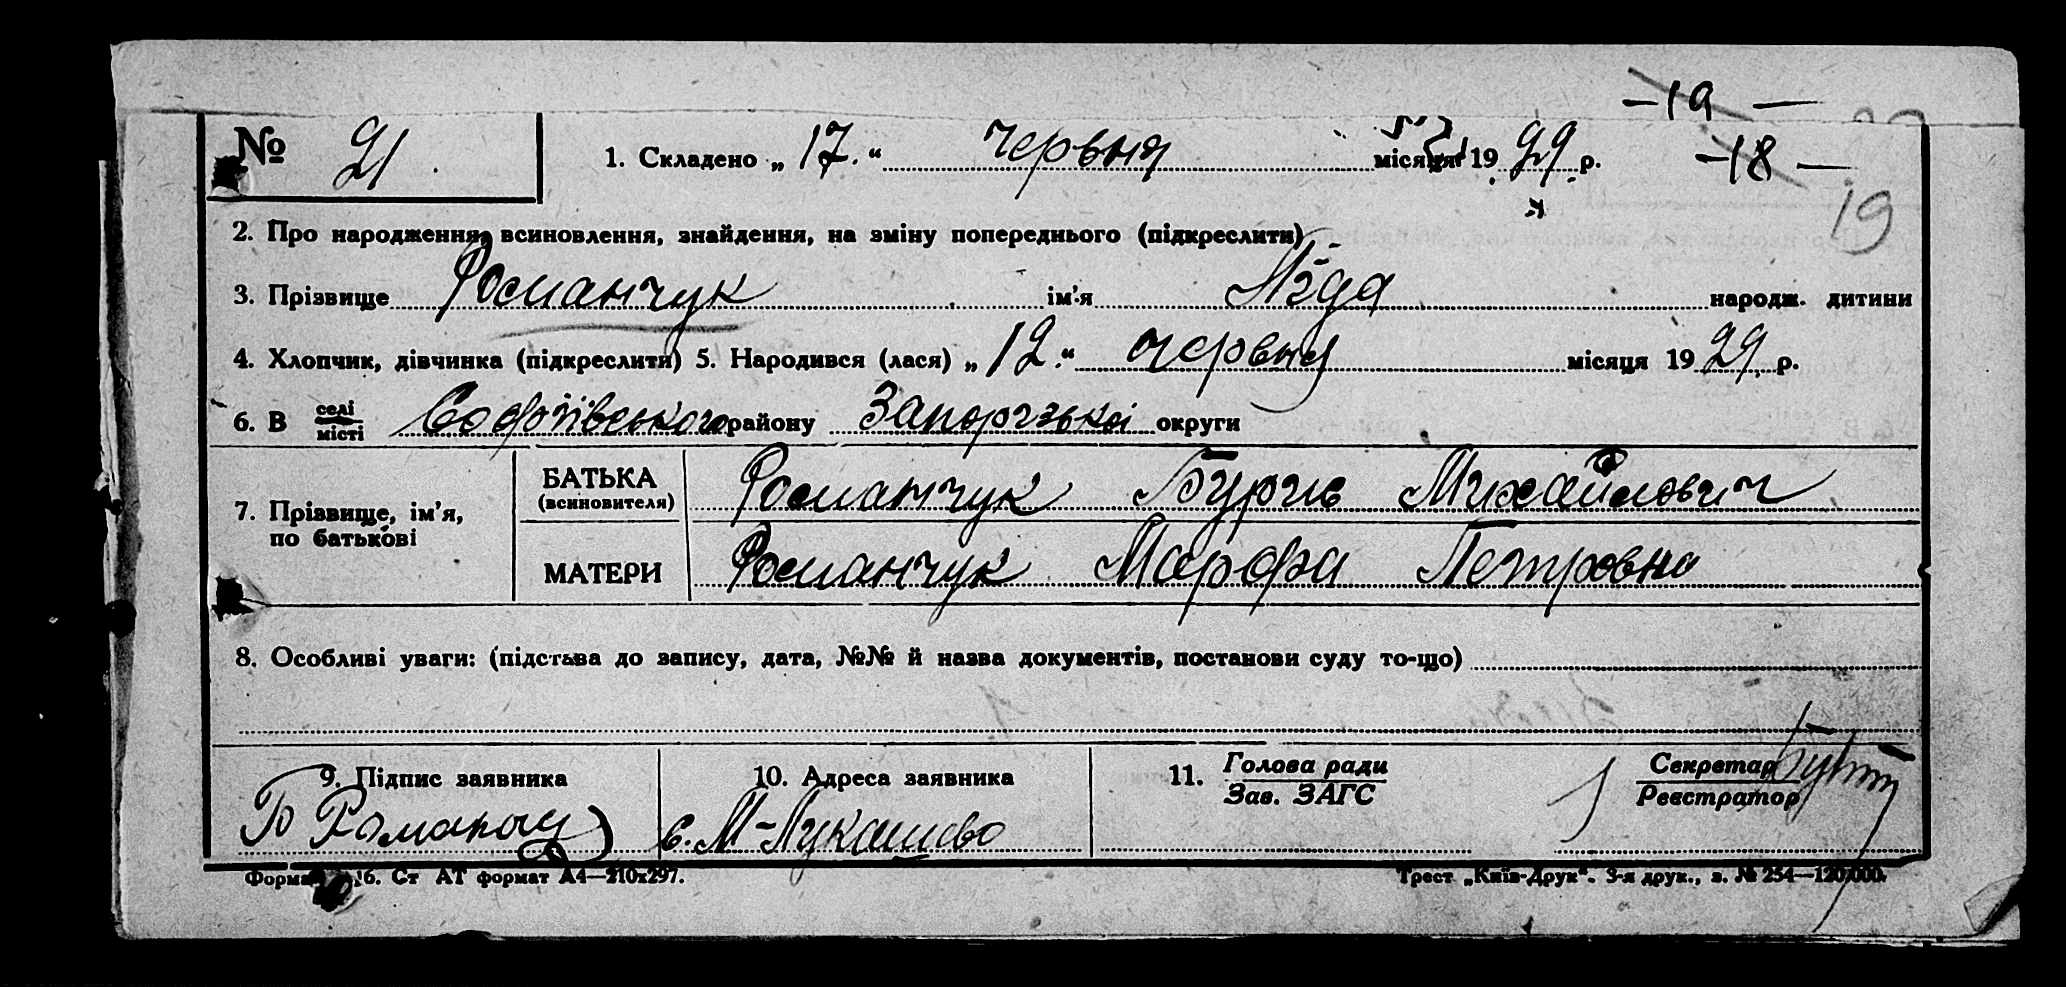 — 19 —
— 18 —
19
№ 21.
1. Складено „ 17. “ червня місяця 19 29 р.
2. Про народження, всиновлення, знайдення, на зміну попереднього (підкреслити)
3. Прізвище Романчук ім'я Ліда народж. дитини
4. Хлопчик, дівчинка (підкреслити) 5. Народився (лася) „ 12. “ червня місяця 19 29 р.
6. В селі місті Софіївського району Запорізької округи
7. Прізвище, ім'я, по батькові
БАТЬКА (всиновителя) Романчук Михайлович
МАТЕРИ Романчук Марфа Петровна
8. Особливі уваги: (підстава до запису, дата, №№ й назва документів, постанови суду то-що)
9. Підпис заявника
Б Романчу
10. Адреса заявника
с. М-Лукашево
11. Голова ради
Зав. ЗАГС
Секретар
Реєстратор
Форма 16. Ст АТ формат А4—210х297.
Трест „Київ-Друк“. 3-я друк., з. № 254—120.000.